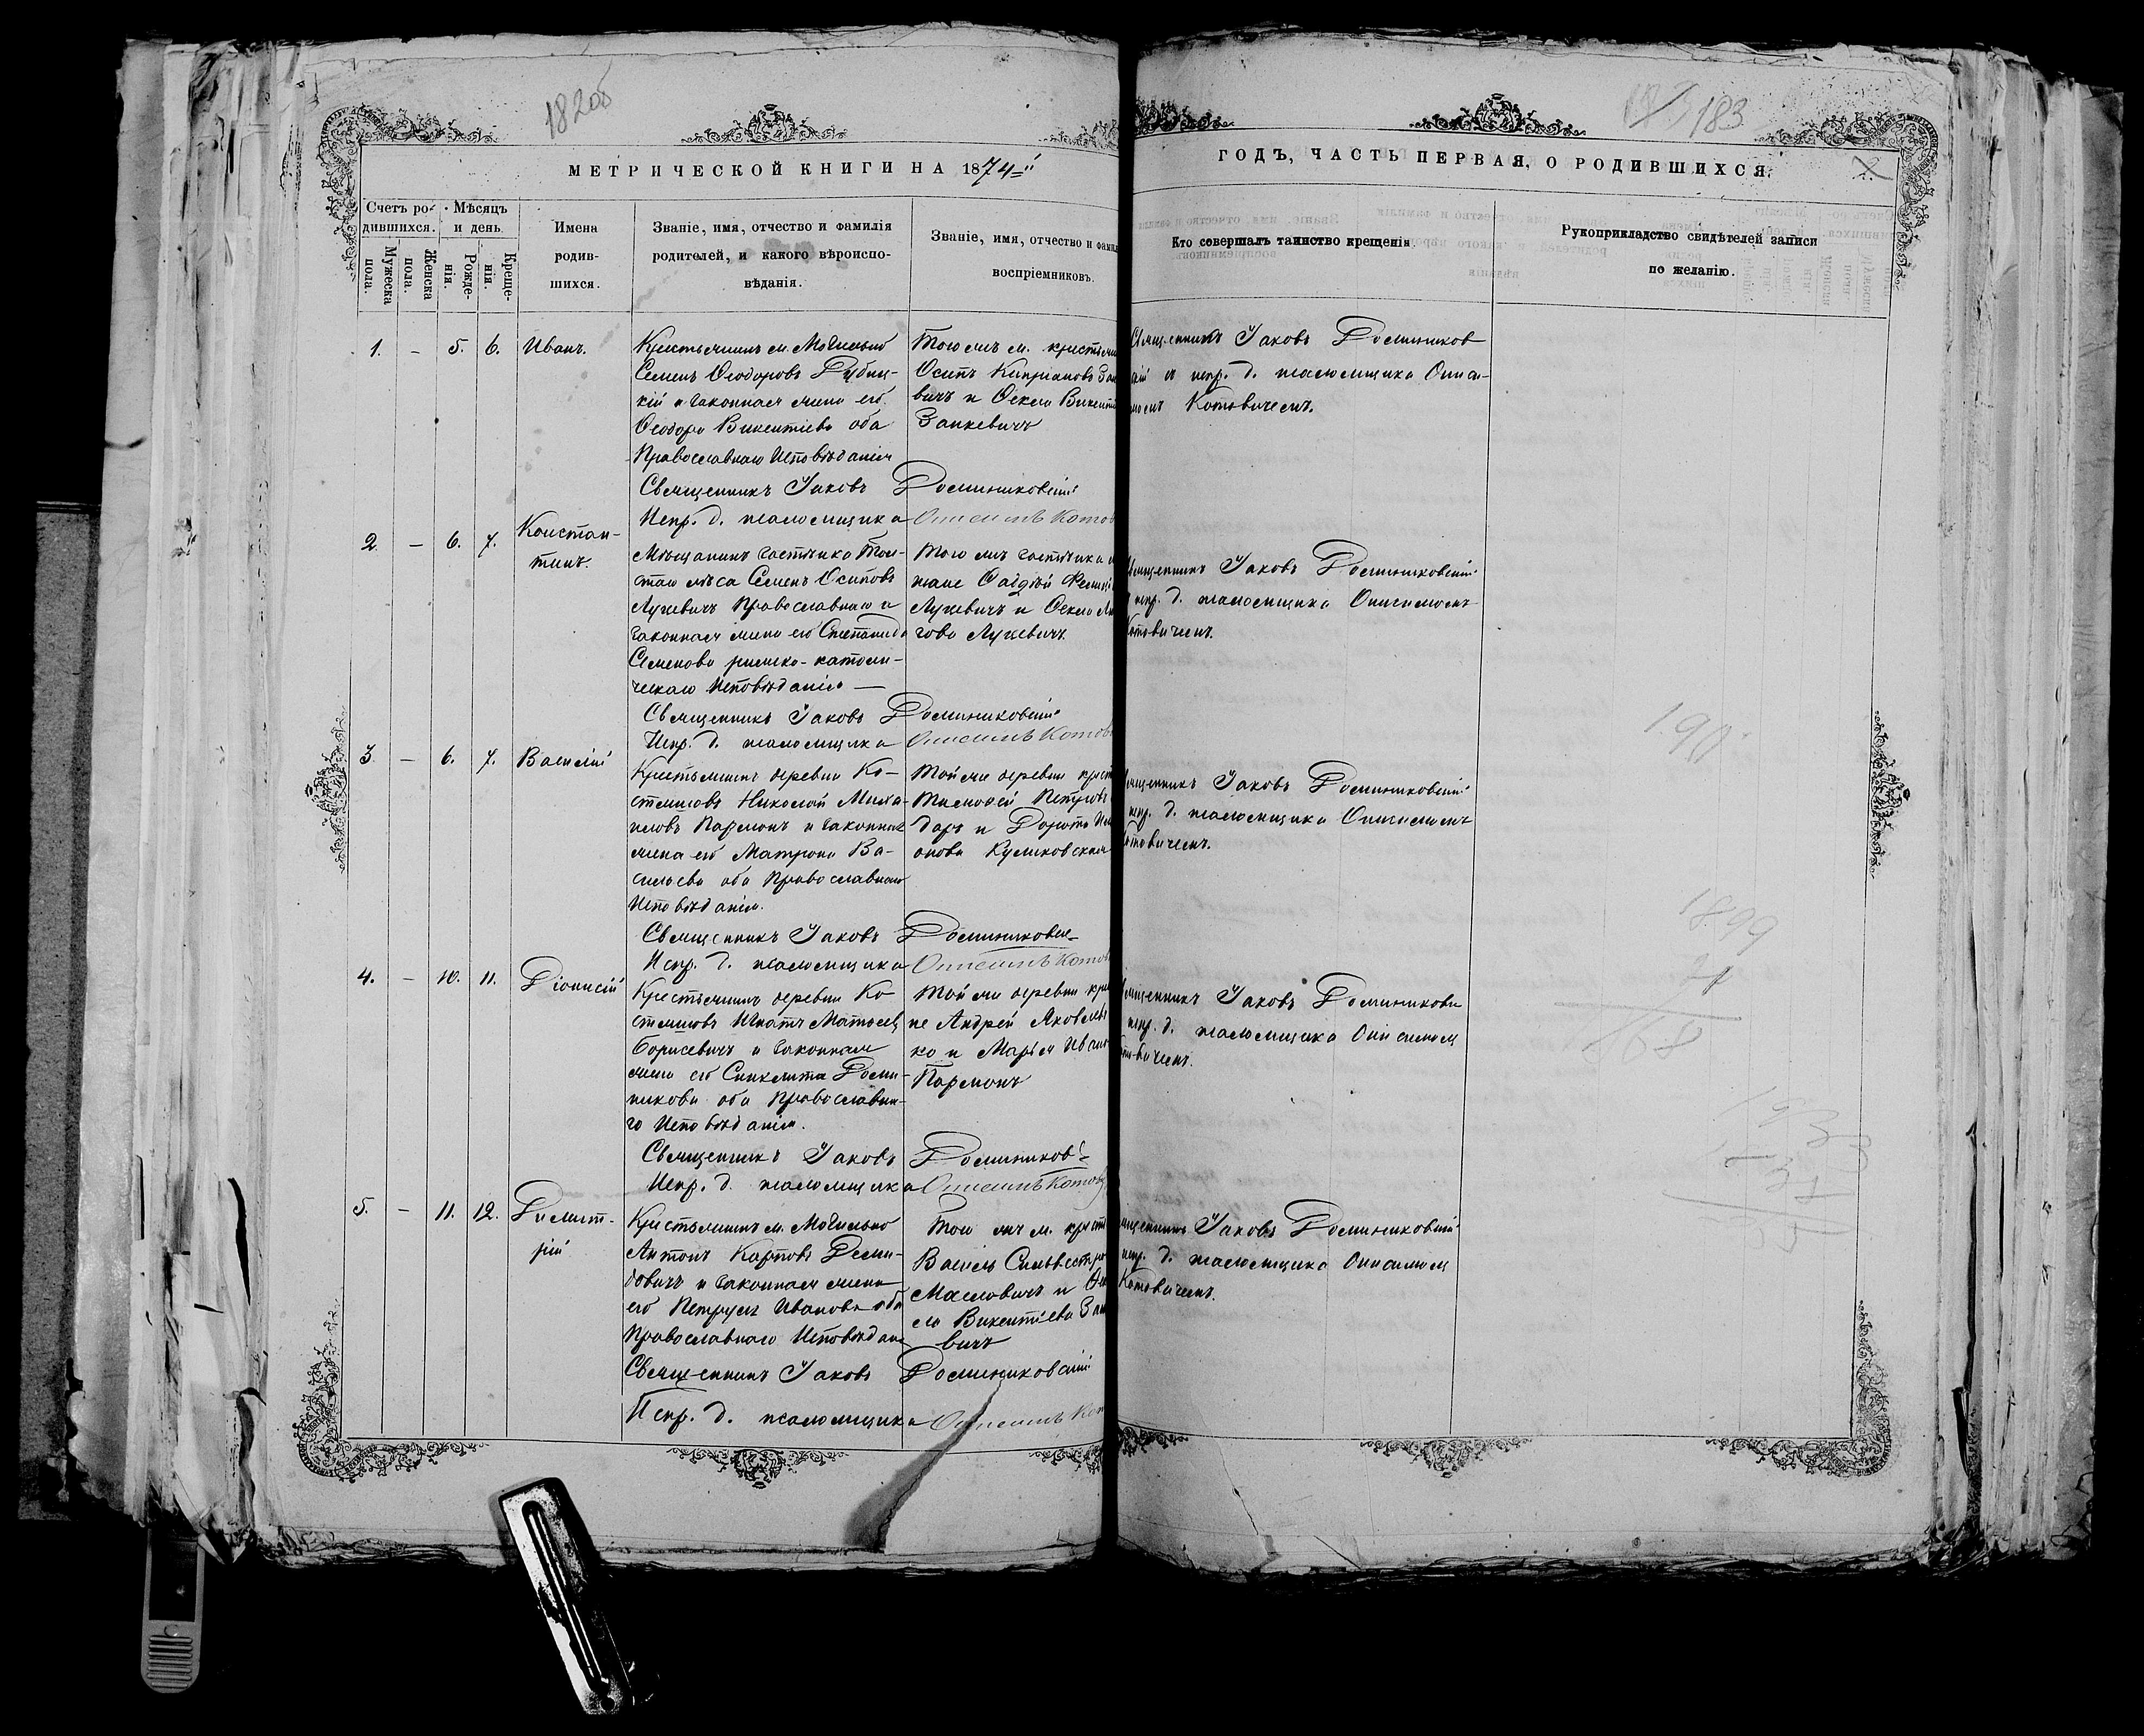 182об
183
МЕТРИЧЕСКОЙ КНИГИ НА 1874-й
ГОДЪ, ЧАСТЬ ПЕРВАЯ, О РОДИВШИХСЯ.
Счетъ ро-
дившихся.
Мѣсяцъ
и день.
Мужеска
пола.
Женска
пола.
Рожде-
нія.
Креще-
нія.
Имена
родив-
шихся.
Званіе, имя, отчество и фамилія
родителей, и какого вѣроиспо-
вѣданія.
Званіе, имя, отчество и фамил
воспріемниковъ.
Кто совершалъ таинство крещенія.
Рукоприкладство свидѣтелей записи
по желанію.
1. – 5. 6. Иванъ.
Крестьянинъ м. Могильно
Семенъ Ѳеодоровъ
кій и законная жена его
Ѳеодора Викентіева оба
Православнаго Исповѣданія
Тогожъ м. крестьяни
Осипъ Кипріановъ Зан
вичъ и Ѳекла Викентi
Занкевичъ
Священникъ Іаковъ Доминиковскій
Испр. д. псаломщика Онисимъ Котов
Священникъ Іаковъ Домиников
скій и испр. д. псаломщикаОниси-
момъ Котовичемъ.
2. – 6. 7. Констан-
тинъ.
Мѣщанинъ застѣнка Тол-
стаго лѣса Семенъ Осиповъ
Лукевичъ Православнаго и
законная жена его Степанида
Семенова римско-католи-
ческаго Исповѣданія —
Того жъ застѣнка м
жане
Лукевичъ и Ѳекла
Лукевичъ
Священникъ Іаковъ Доминиковскій
Испр. д. псаломщика Онисимъ Котов
Священникъ Іаковъ Доминиковскій
испр. д. псаломщика Онисимомъ
Котовичемъ.
3. – 6. 7. Василій
Крестьянинъ деревни Ко-
стешовъ Николай Миха-
иловъ Пармонъ и законная
жена его Матрона Ва-
сильева оба Православнаго
Исповѣданія.
Той же деревни крест
Тимоѳей Петровъ
даръ и Доротa
онова Куликовская
Священникъ Іаковъ Доминиковскі
Испр. д. псаломщика Онисимъ Котов
Священникъ Іаковъ Доминиковскій
испр. д. псаломщика Онисимомъ
Котовичемъ.
4. – 10. 11. Діонисій
Крестьянинъ деревни Ко
стешовъ Игнатъ Матѳеевъ
Борисевичъ и законная
жена его Синклита Доми-
никова оба Православна-
го Исповѣданія.
Той же деревни кре
не Андрей Яковлевъ
ко и Марья Иван
Пармонъ
Священникъ Іаковъ Доминиковс
Испр. д. псаломщика Онисимъ Котов
Священникъ Іаковъ Доминикови
испр. д. псаломщика Онисимом
Котовичемъ.
5. – 11. 12. Димит-
рій
Крестьянинъ м. Могильно
Антонъ Карповъ Деми-
довичъ и законная жена
его Петруся Иванова оба
Православнаго Исповѣдан
Того жъ м. крест
Василь Сильвестро
Масловичъ и Ѳек
ла Викентіева Зан
вичъ
Священникъ Іаковъ Доминиковскій
Испр. д. псаломщика Онисимъ Кот
Священникъ Іаковъ Доминиковскій
испр. д. псаломщика Онисимом
Котовичемъ.
1899